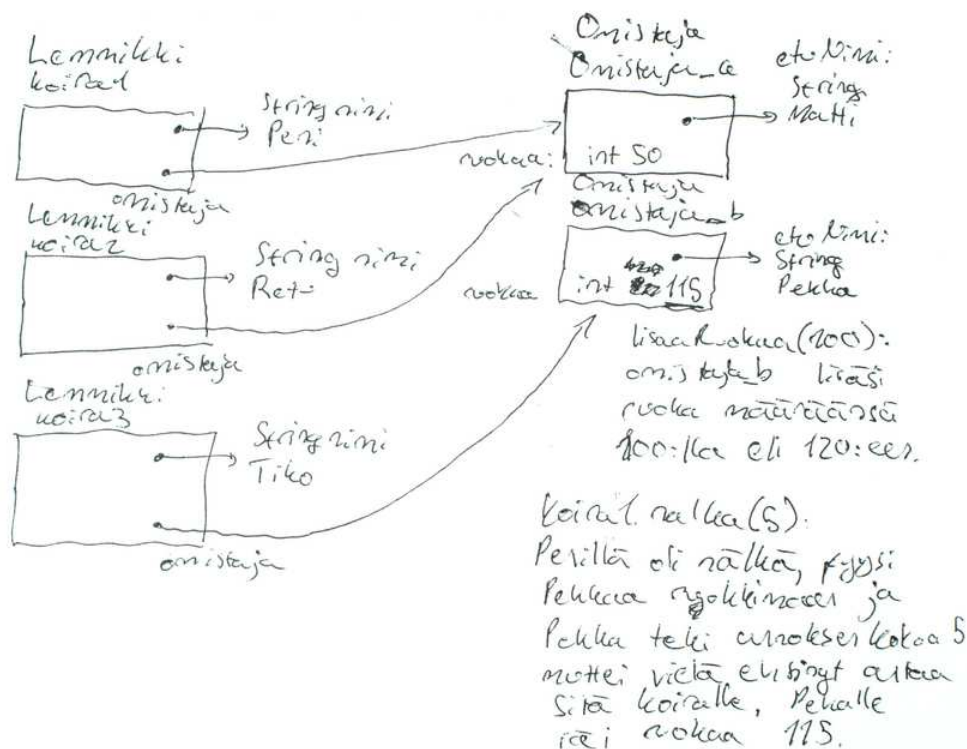 Lemmikki
koira1
String nimi
Peni
omistaja
Lemmikki
koira2
String nimi
Reti
omistaja
Lemmikki
koira3
String nimi
Tiko
omistaja
Omistaja
Omistaja_a
etuNimi:
String
Matti
ruokaa: int 50
Omistaja
omistaja_b
etuNimi:
String
Pekka
ruokaa int 115
lisaaRuokaa(100):
omistaja_b lisäsi
ruoka määräänsä
100:lla eli 120:een.
koira1.nalka(5).
Penillä oli nälkä, pyysi
Pekkaa ruokkimaan ja
Pekka teki annoksen kokoa 5
muttei vielä ehtinyt antaa
sitä koiralle, Pekalle
jäi ruokaa 115.